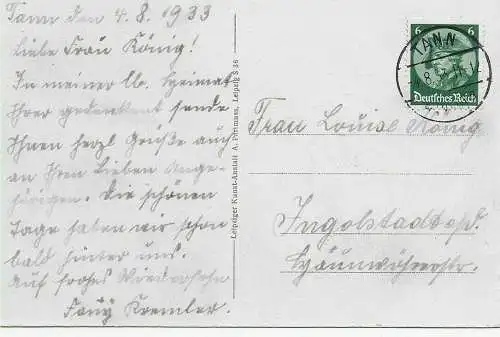 Tann den 4.8.1933
Liebe Frau König!
In meiner lb. Heimat
Ihrer gedenkend sende
Ihnen herzl Grüße auch
an Ihren Lieben Ange-
hörigen. Die schönen
Tage haben wir schon
bald hinter uns.
Auf frohes Wiedersehn
Fanny Kremler.
Leipziger Kunst-Anstalt A. Leipzig S 36
6 6
TANN
Deutsches Reich
Frau Louise König
Ingolstadt a/d.